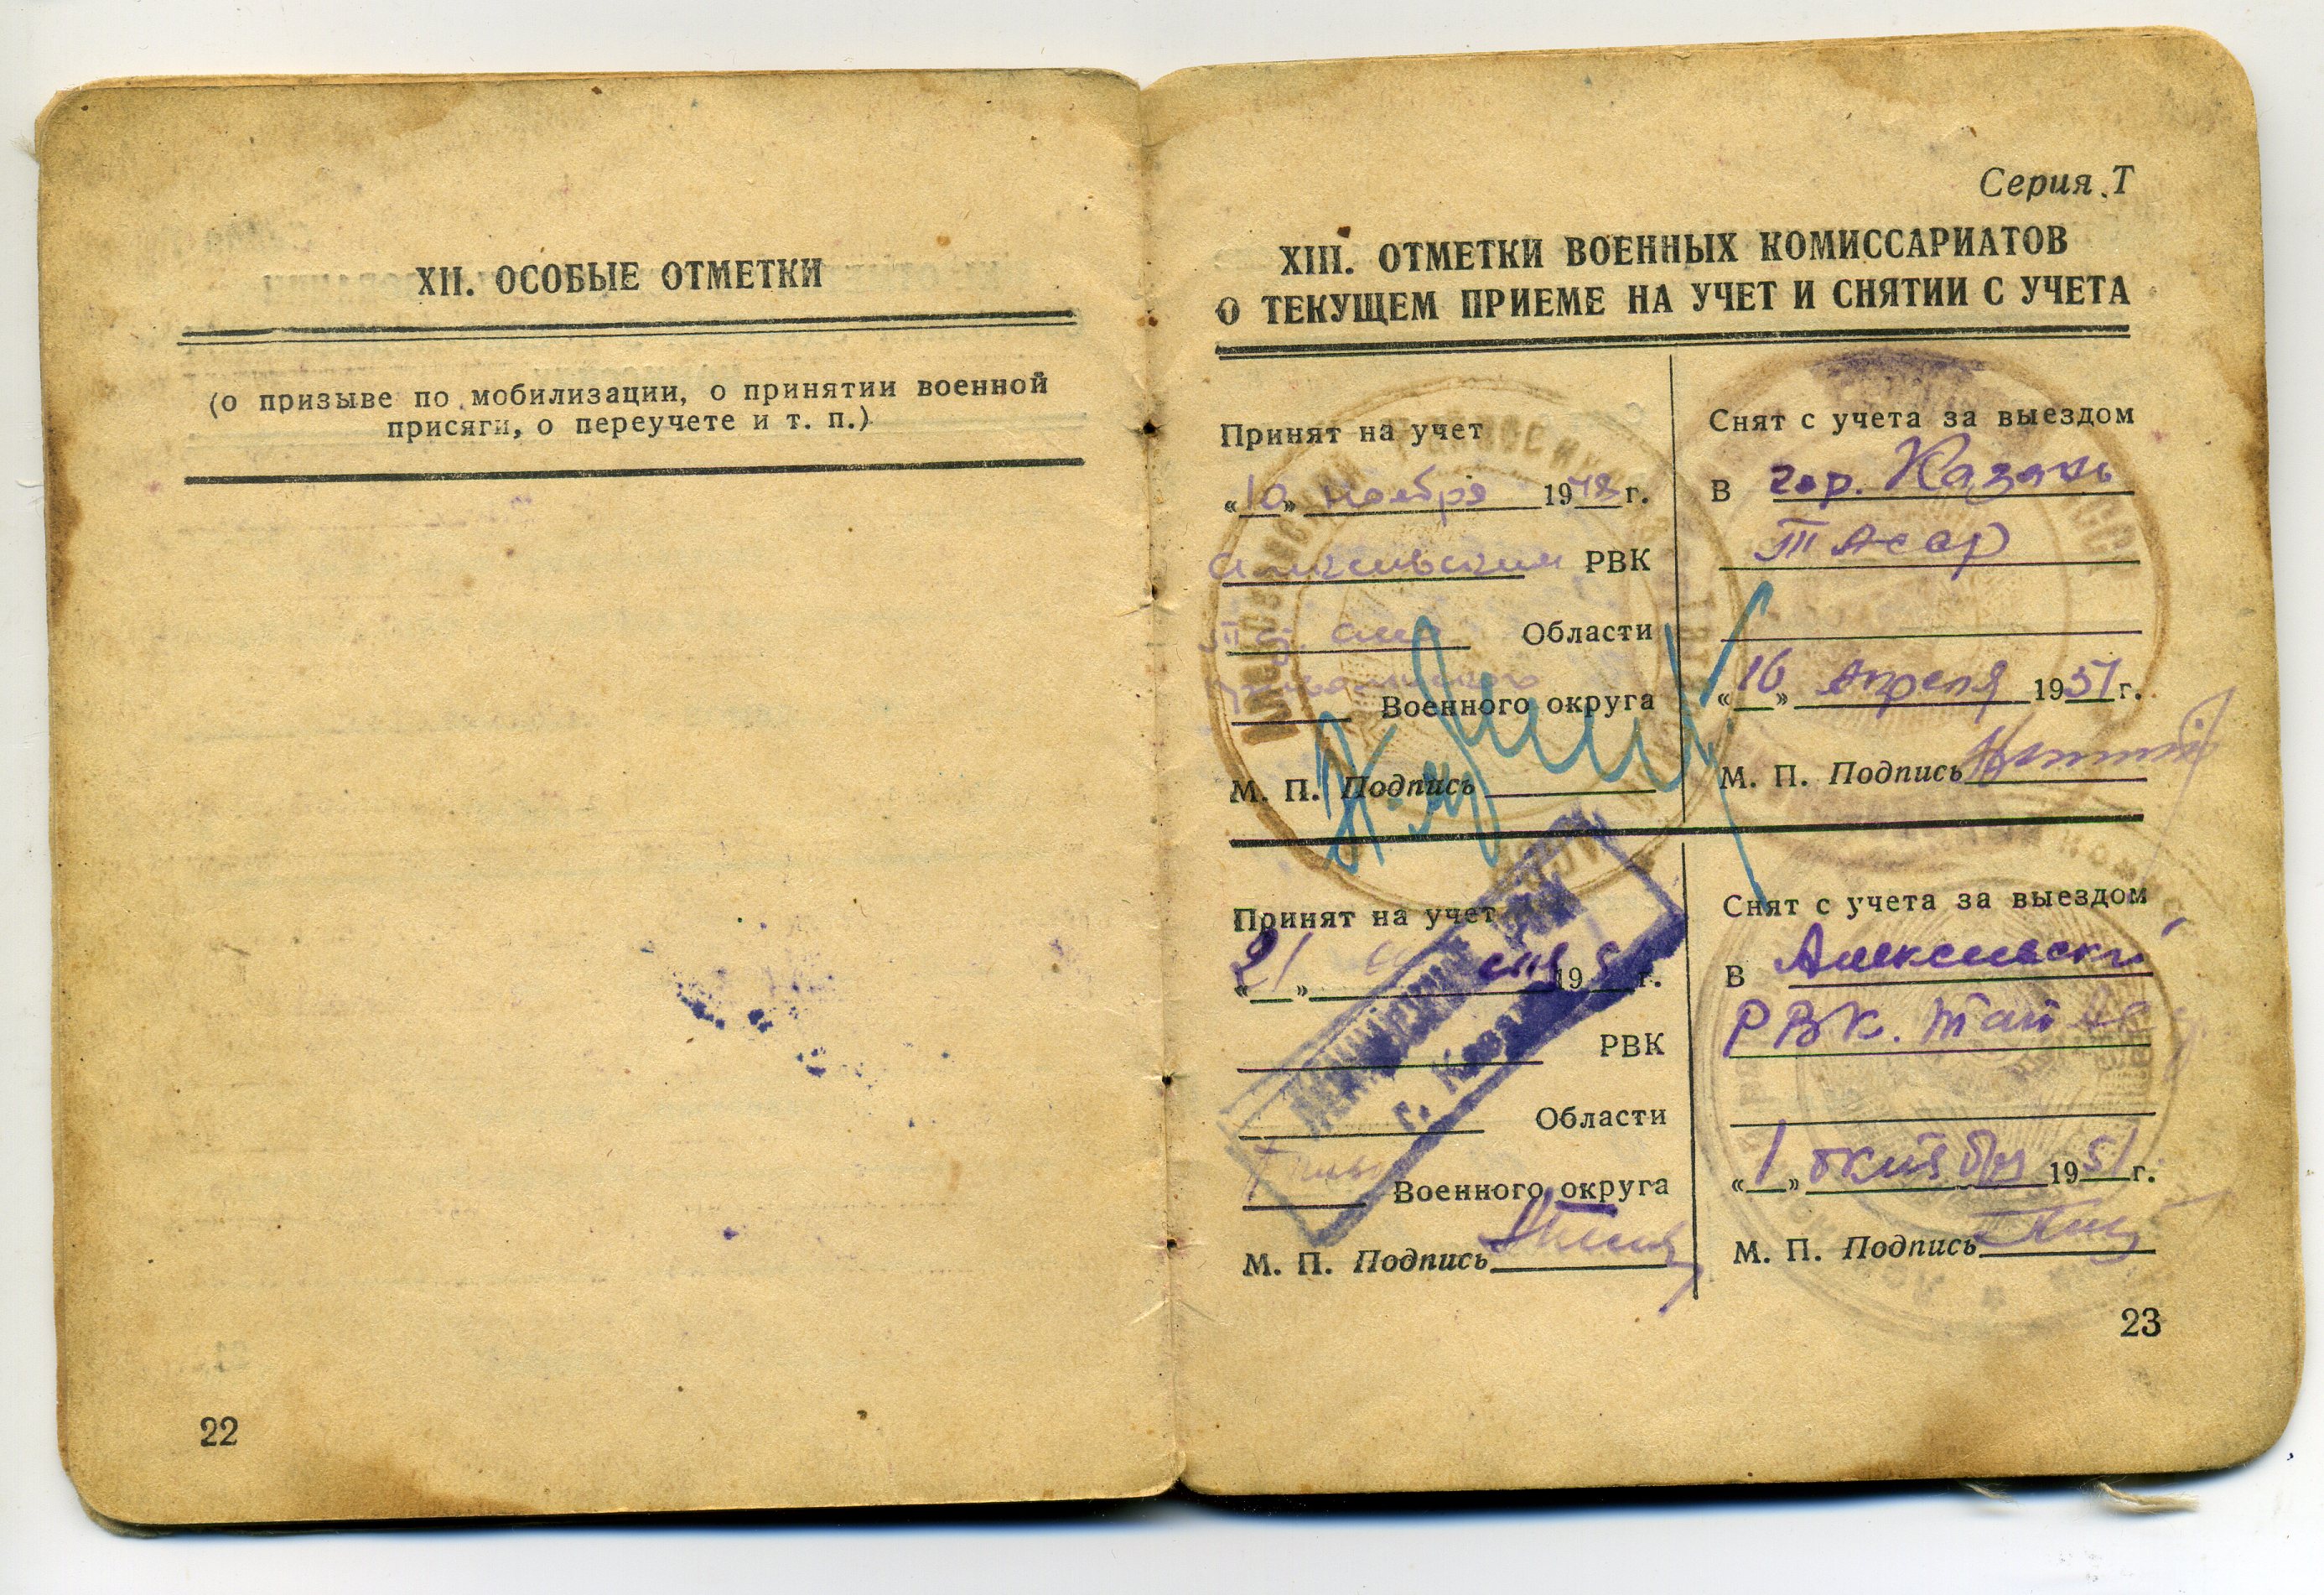 XII. ОСОБЫЕ ОТМЕТКИ
(о призыве по мобилизации, о принятии военной
присяги, о переучете и т. п.)
22
Серия Т
XIII. ОТМЕТКИ ВОЕННЫХ КОМИССАРИАТОВ
О ТЕКУЩЕМ ПРИЕМЕ НА УЧЕТ И СНЯТИИ С УЧЕТА
Принят на учет
«10» ноября 1948 г.
РВК
Области
Военного округа
М. П. Подпись
Снят с учета за выездом
В гор. Казань
ТАССР
«16» Апреля 1951 г.
М. П. Подпись
Принят на учет
«21» 19 г.
РВК
Области
Военного округа
М. П. Подпись
г. Казан
Снят с учета за выездом
В Алексеевски
РВК.
«1» октября 1951 г.
М. П. Подпись
23